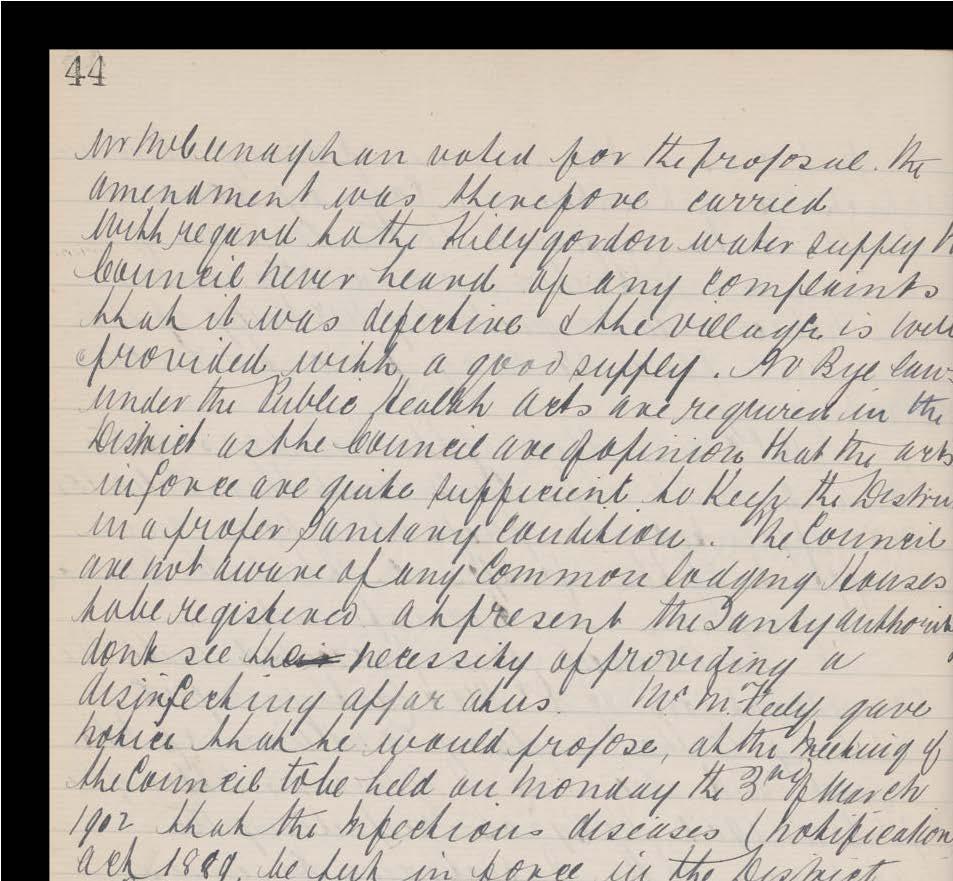 44
Mr McClenaghan voted for the proposal. The
amendment was therefore carried
With regard to the Killygordon water supply
Council never heard of any complaints
that it was defective & the village is well
provided with a good supply. No Bye laws
under the Public Health Acts are required in the
District as the Council are of opinion that the acts
in force are quite sufficient to keep the
in a proper Sanitary Condition. The Council
are not aware of any Common lodging Houses
to be registered at present the authority
dont see the necessity of providing a
disinfecting apparatus. Mr McFeely gave
notice that he would propose, at the meeting of
the Council to be held on Monday the 3rd of March
1902 that the Infectious diseases (notification
act 1889, be put in force in the District